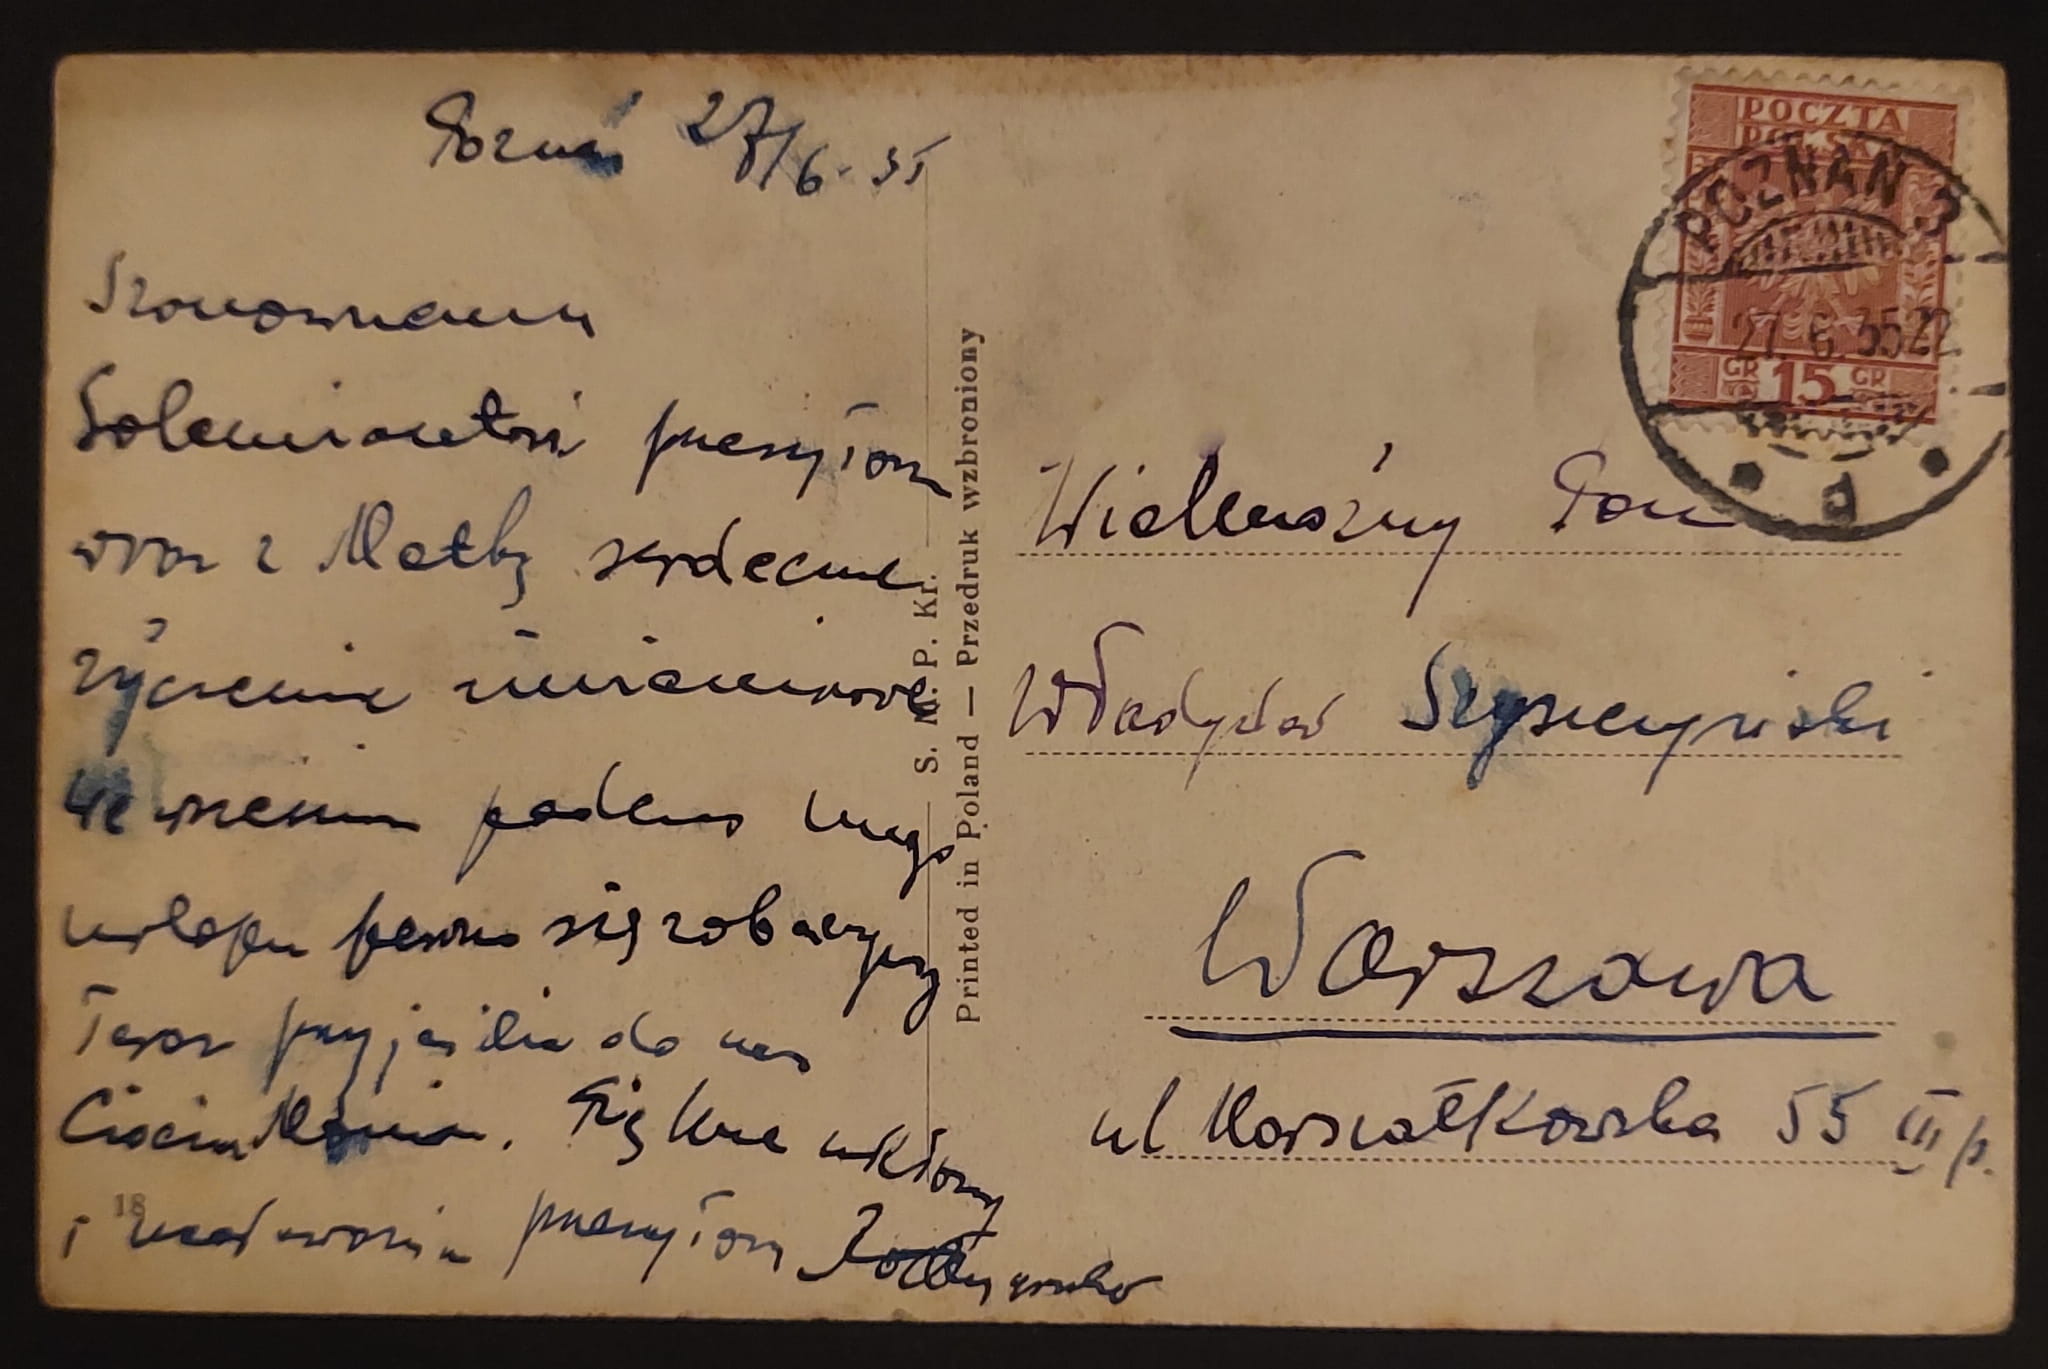 Poznań 27/6. 35
Szanownemu
Solenizantowi przesyłam
wraz z Matką serdeczne
życzenia imieninowe
We wrześniu podczas mego
urlopu pewno się zobaczymy
Teraz przyjeździe do nas
Ciocia Mania. Piękne ukłony
i ucałowania przesyłam
18
S. M. P. Kr.
Printed in Poland — Przedruk wzbroniony
POCZTA
POLSKA
GR 15 GR
POZNAŃ 3
27. 6. 35 22
d
Wielmożny Pan
Władysław Szyszczyński
Warszawa
ul Marszałkowska 55 III p.